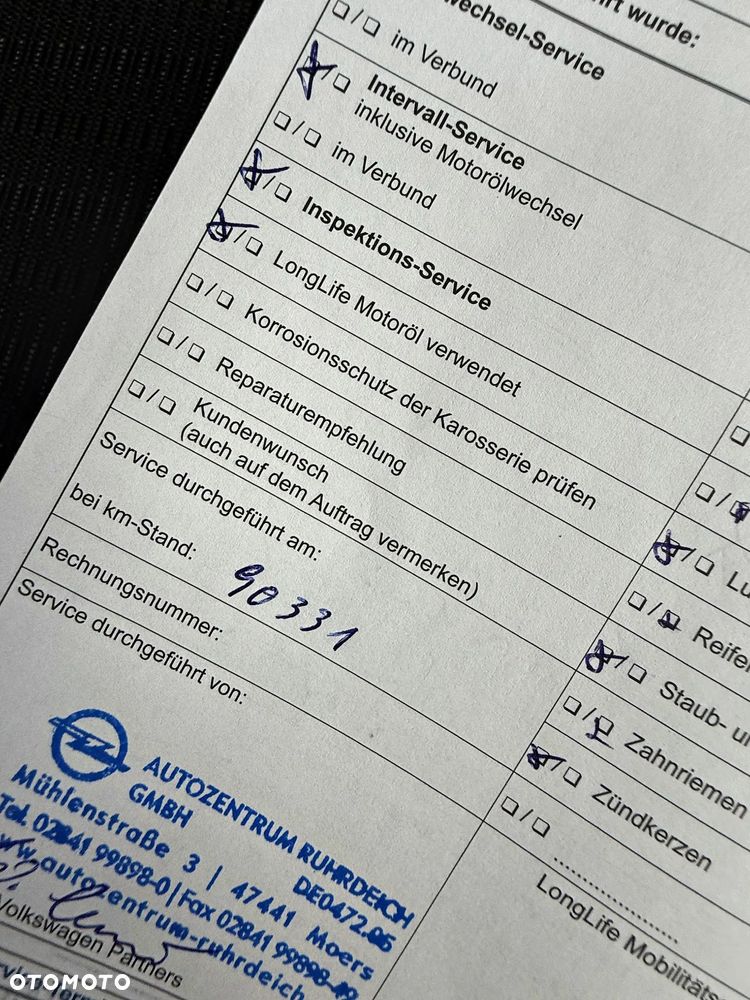 rt wurde:
wechsel-Service
im Verbund
Intervall-Service
inklusive Motorölwechsel
im Verbund
Inspektions-Service
LongLife Motoröl verwendet
Korrosionsschutz der Karosserie prüfen
Reparaturempfehlung
Kundenwunsch
(auch auf dem Auftrag vermerken)
Service durchgeführt am:
bei km-Stand: 90331
Rechnungsnummer:
Service durchgeführt von:
AUTOZENTRUM RUHRDEICH
GMBH DE0472.06
Mühlenstraße 3 | 47441 Moers
Tel. 02841 99898-0 | Fax 02841 99898-49
www.autozentrum-ruhrdeich
Volkswagen Partners
Lu
Reifen
Staub- un
Zahnriemen
Zündkerzen
....................
LongLife Mobilitäts
OTOMOTO